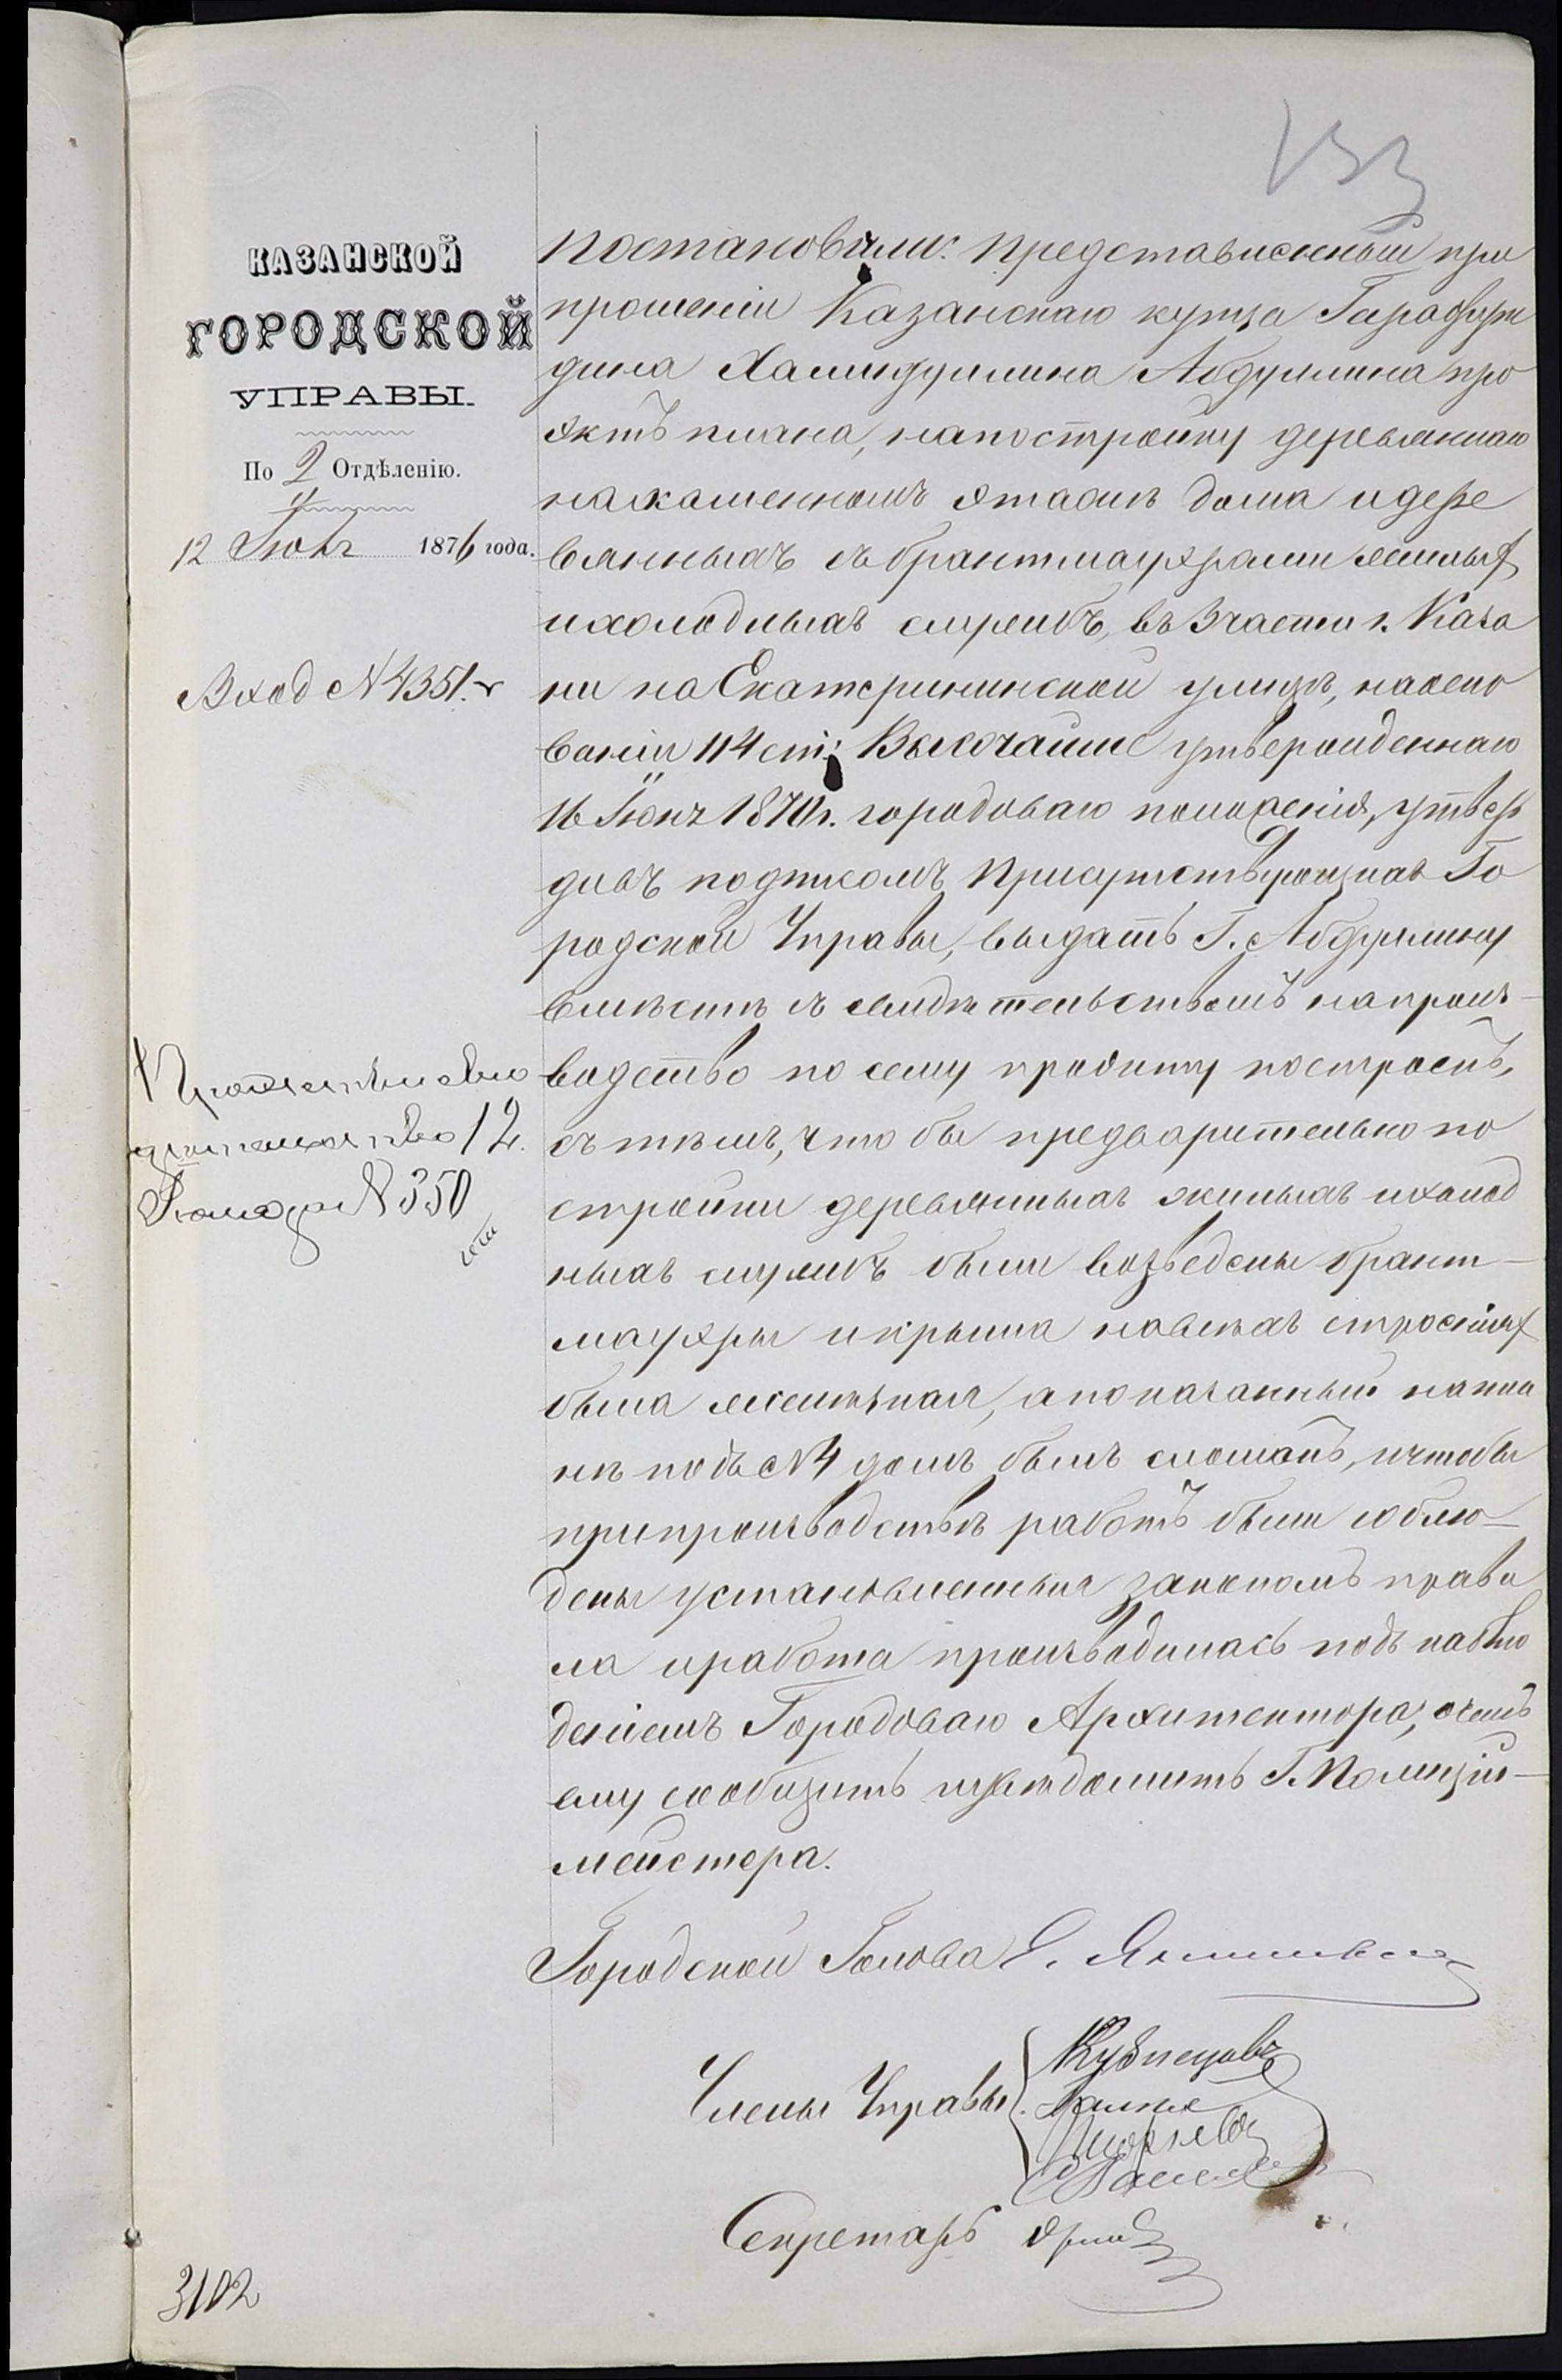 КАЗАНСКОЙ
ГОРОДСКОЙ
УПРАВЫ.
По 2 Отдѣленію.
12 Іюня 1876 года.
Вход № 4351.
№ 350
3102
постановили: представленный при
прошеніи Казанскаго купца
дина Хамидуллина Абдуллина про
эктъ плана, на постройку деревяннаго
на каменномъ этажѣ дома и дере
вянныхъ съ брантмауэрами жилыхъ
и холодныхъ службъ, въ 3 части г. Каза
ни на Екатерининской улицѣ, на осно
ваніи 114 ст: Высочайше утвержденнаго
16 Іюня 1870 г. городоваго положенія, утвер
дивъ подписомъ присутствующихъ Го
родской Управы, выдать Г. Абдуллину
вмѣстѣ съ свидѣтельствомъ на произ-
водство по сему проэкту построекъ,
съ тѣмъ, что бы предварительно по
стройки деревянныхъ жилыхъ и холод
ныхъ службъ были возведены брант-
мауэры и крыша на всѣхъ строеніяхъ
была желѣзная, а показанный на пла
нѣ подъ № 4 домъ былъ сломанъ, и чтобы
при производствѣ работъ были соблю-
дены установленныя закономъ прави
ла и работа производилась подъ наблю
деніемъ Городоваго Архитектора, о чемъ
ему сообщить и увѣдомить Г. Полиціи-
мейстера.
Городской Голова Е. Янишевскій
Члены Управы: Кузнецовъ
Секретарь